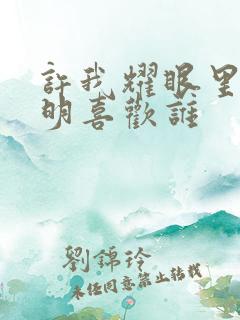 許我耀眼里
明喜歡誰
劉錦玲
未经同意禁止转载